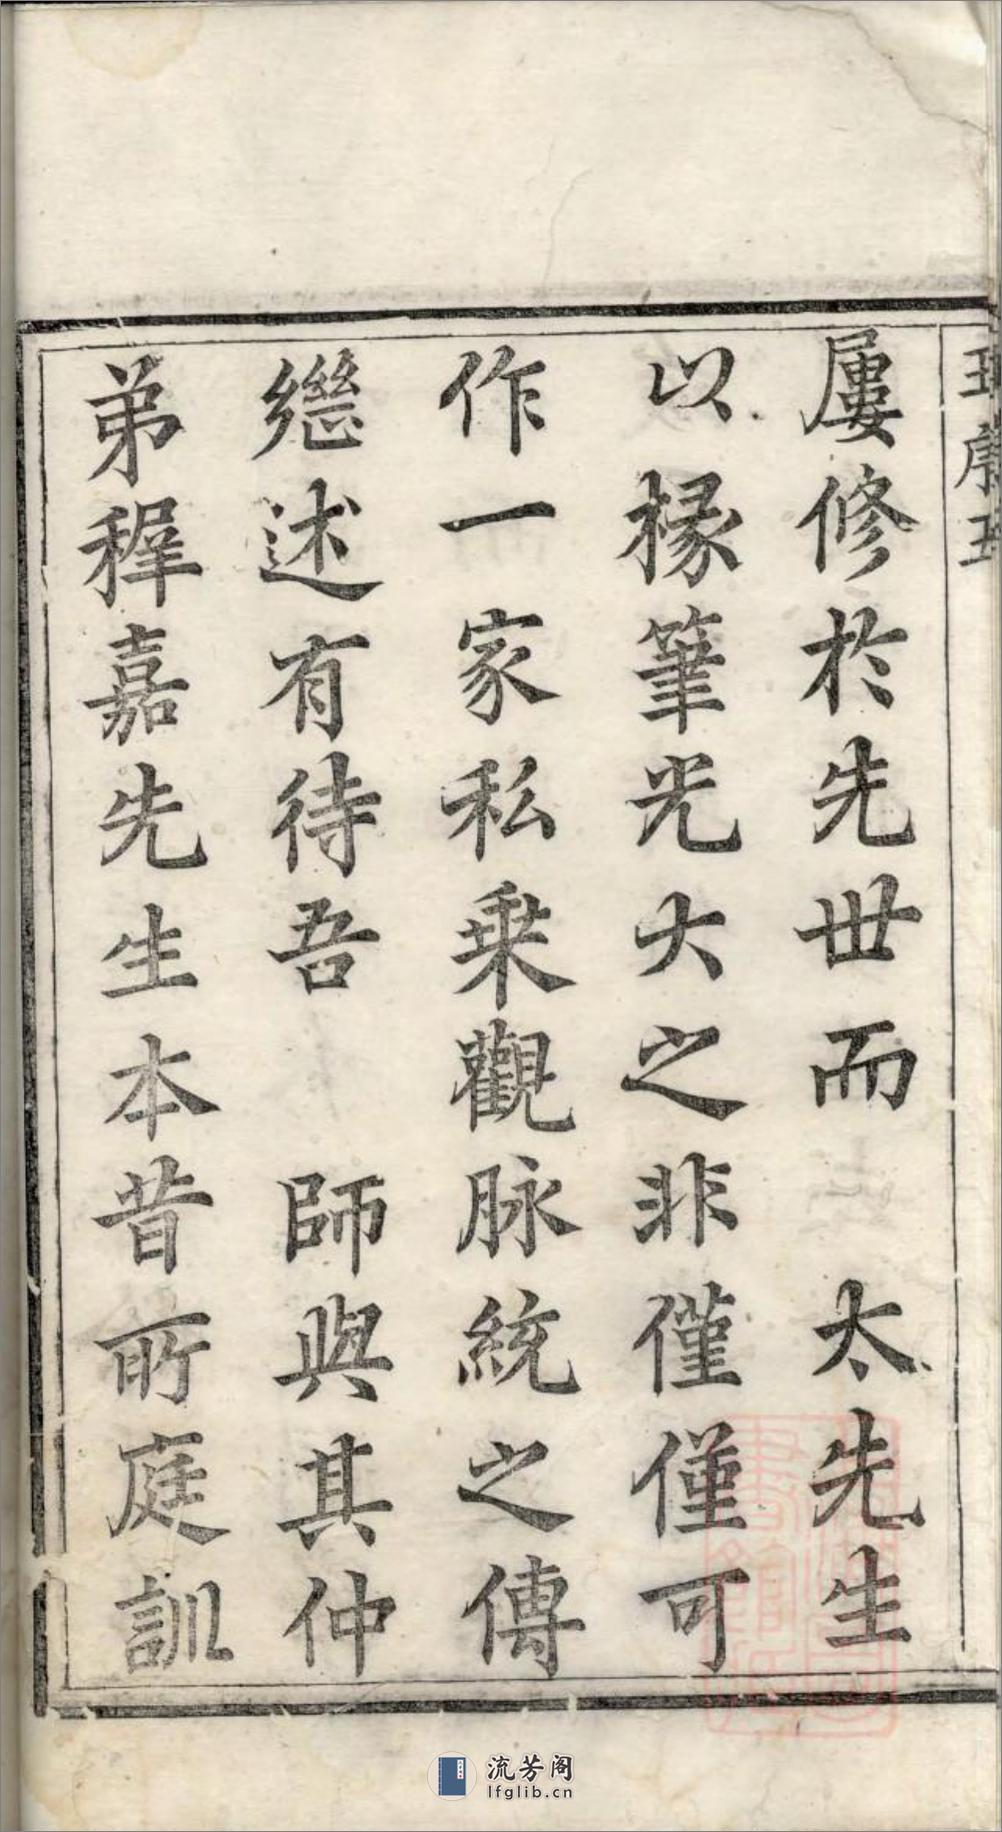 屢修於先世而　太先生
以椽筆光大之非僅僅可
作一家私乗觀脉統之傳
繼述有待吾　師與其仲
弟穉嘉先生本昔所庭訓
流芳阁
lfglib.cn